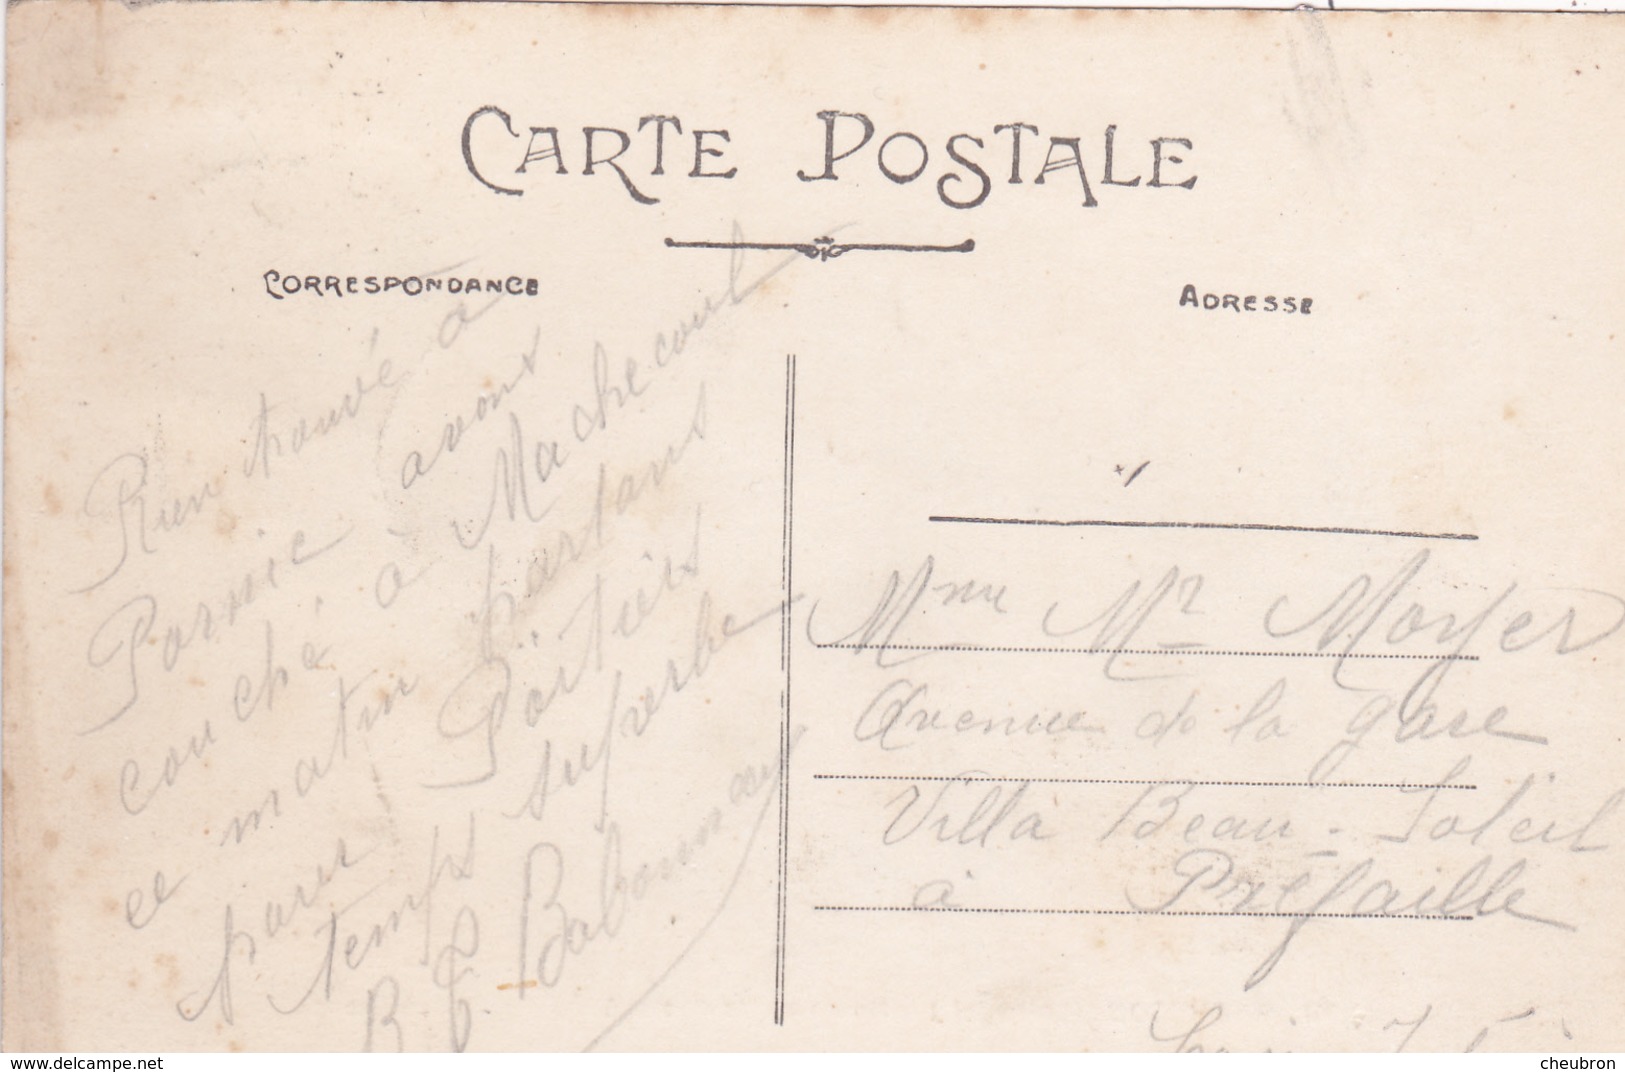 CARTE POSTALE
CORRESPONDANCE
ADRESSE
Rien trouvé à
Pornic avons
couché à Machecoul
ce matin partans
pour Poitiers
temps superbe
B. C. Babonneau
Mme Mr Moyer
Avenue de la gare
Villa Beau-Soleil
à Préfaille
Loire Inf
www.delcampe.net
cheubron